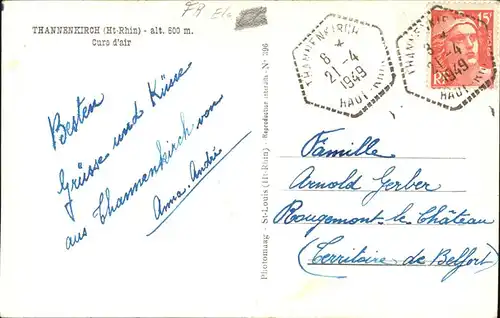 FR Els
THANNENKIRCH (Ht-Rhin) - alt. 600 m.
Curs d'air
Besten
Grüsse und Küsse
aus Thannenkirch von
Anna. André
Photomag - St-Louis (Ht-Rhin) Reproduction interdite - N° 396
THANNENKIRCH
8 *
21-4
1949
HAUT-RHIN
THANNENKIRCH
8 *
21-4
1949
HAUT-RHIN
15F
Famille
Arnold Gerber
Rougemont le Château
(Territoire de Belfort)